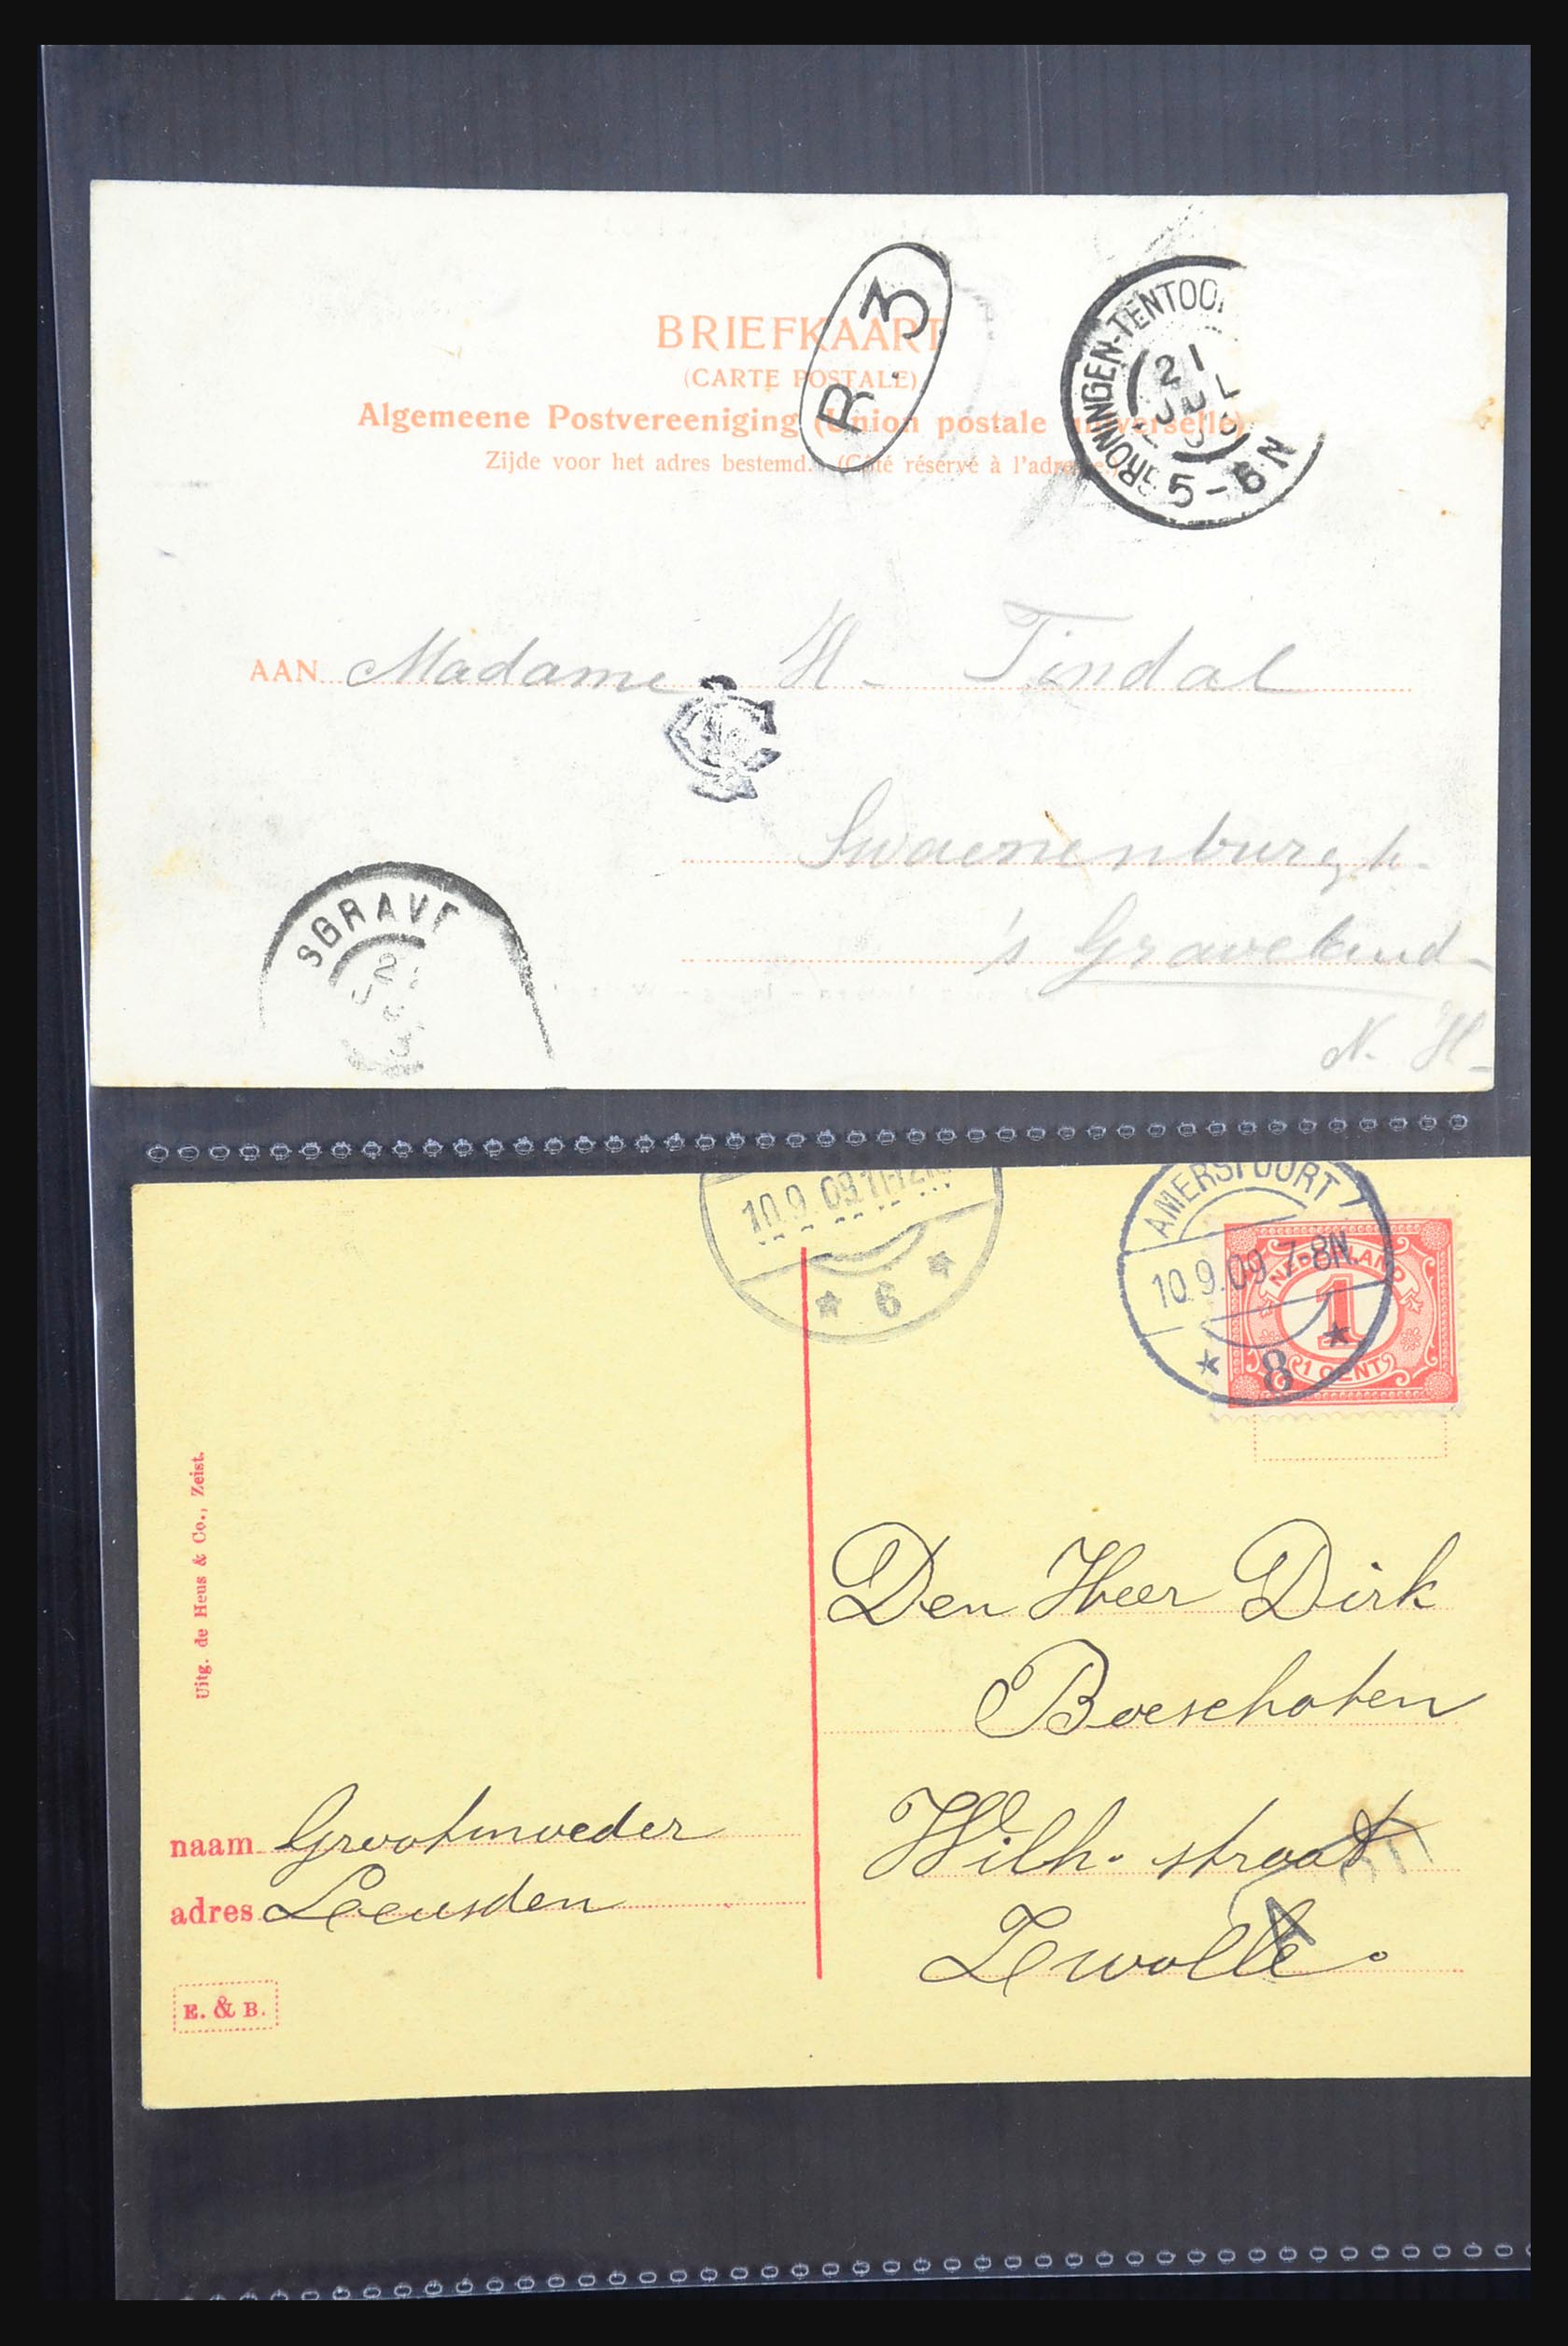 R. 3
GRONINGEN-TENTOO
21
JUL
5-6N
BRIEFKAART
(CARTE POSTALE)
Algemeene Postvereeniging (Union postale universelle)
Zijde voor het adres bestemd. (Côté réservé à l'adresse.)
AAN Madame H. Tindal
Swaenenburgh.
's Graveland
N. H.
SGRAVE
10.9.09.11-12
6
AMERSFOORT
10.9.09.7-8N.
8
NEDERLAND
1
1 CENT
Uitg. de Heus & Co., Zeist.
Den Heer Dirk
Boeschoten
Wilh. straat
Zwolle.
naam Grootmoeder
adres Leusden
E. & B.